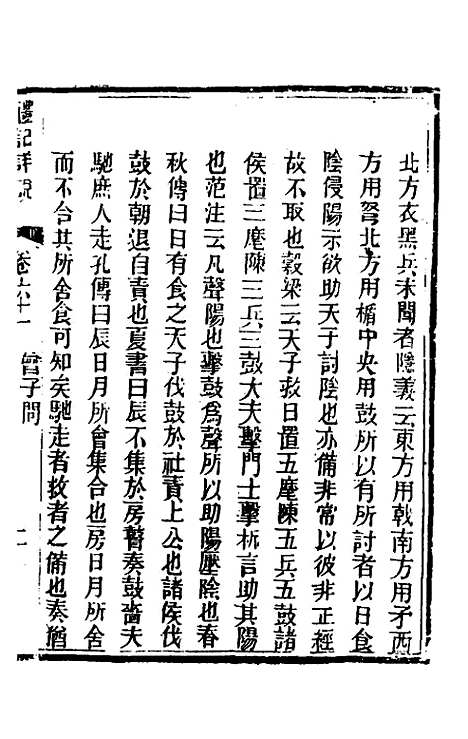 北方衣黑兵未聞者隱義云東方用戟南方用矛西
方用弩北方用楯中央用鼓所以有所討者以日食
陰侵陽示欲助天子討陰也亦備非常以彼非正經
故不取也穀梁云天子救日置五麾陳五兵五鼓諸
侯置三麾陳三兵三鼓大夫擊門士擊柝言助其陽
也范注云凡聲陽也擊鼓爲聲所以助陽壓陰也春
秋傳曰日有食之天子伐鼓於社責上公也諸侯伐
鼓於朝退自責也夏書曰辰不集於房瞽奏鼓嗇夫
馳庶人走孔傳曰辰日月所會集合也房日月所舍
而不合其所舍食可知矣馳走者救者之備也奏猶
禮記詳說 卷六十一 曾子問 二